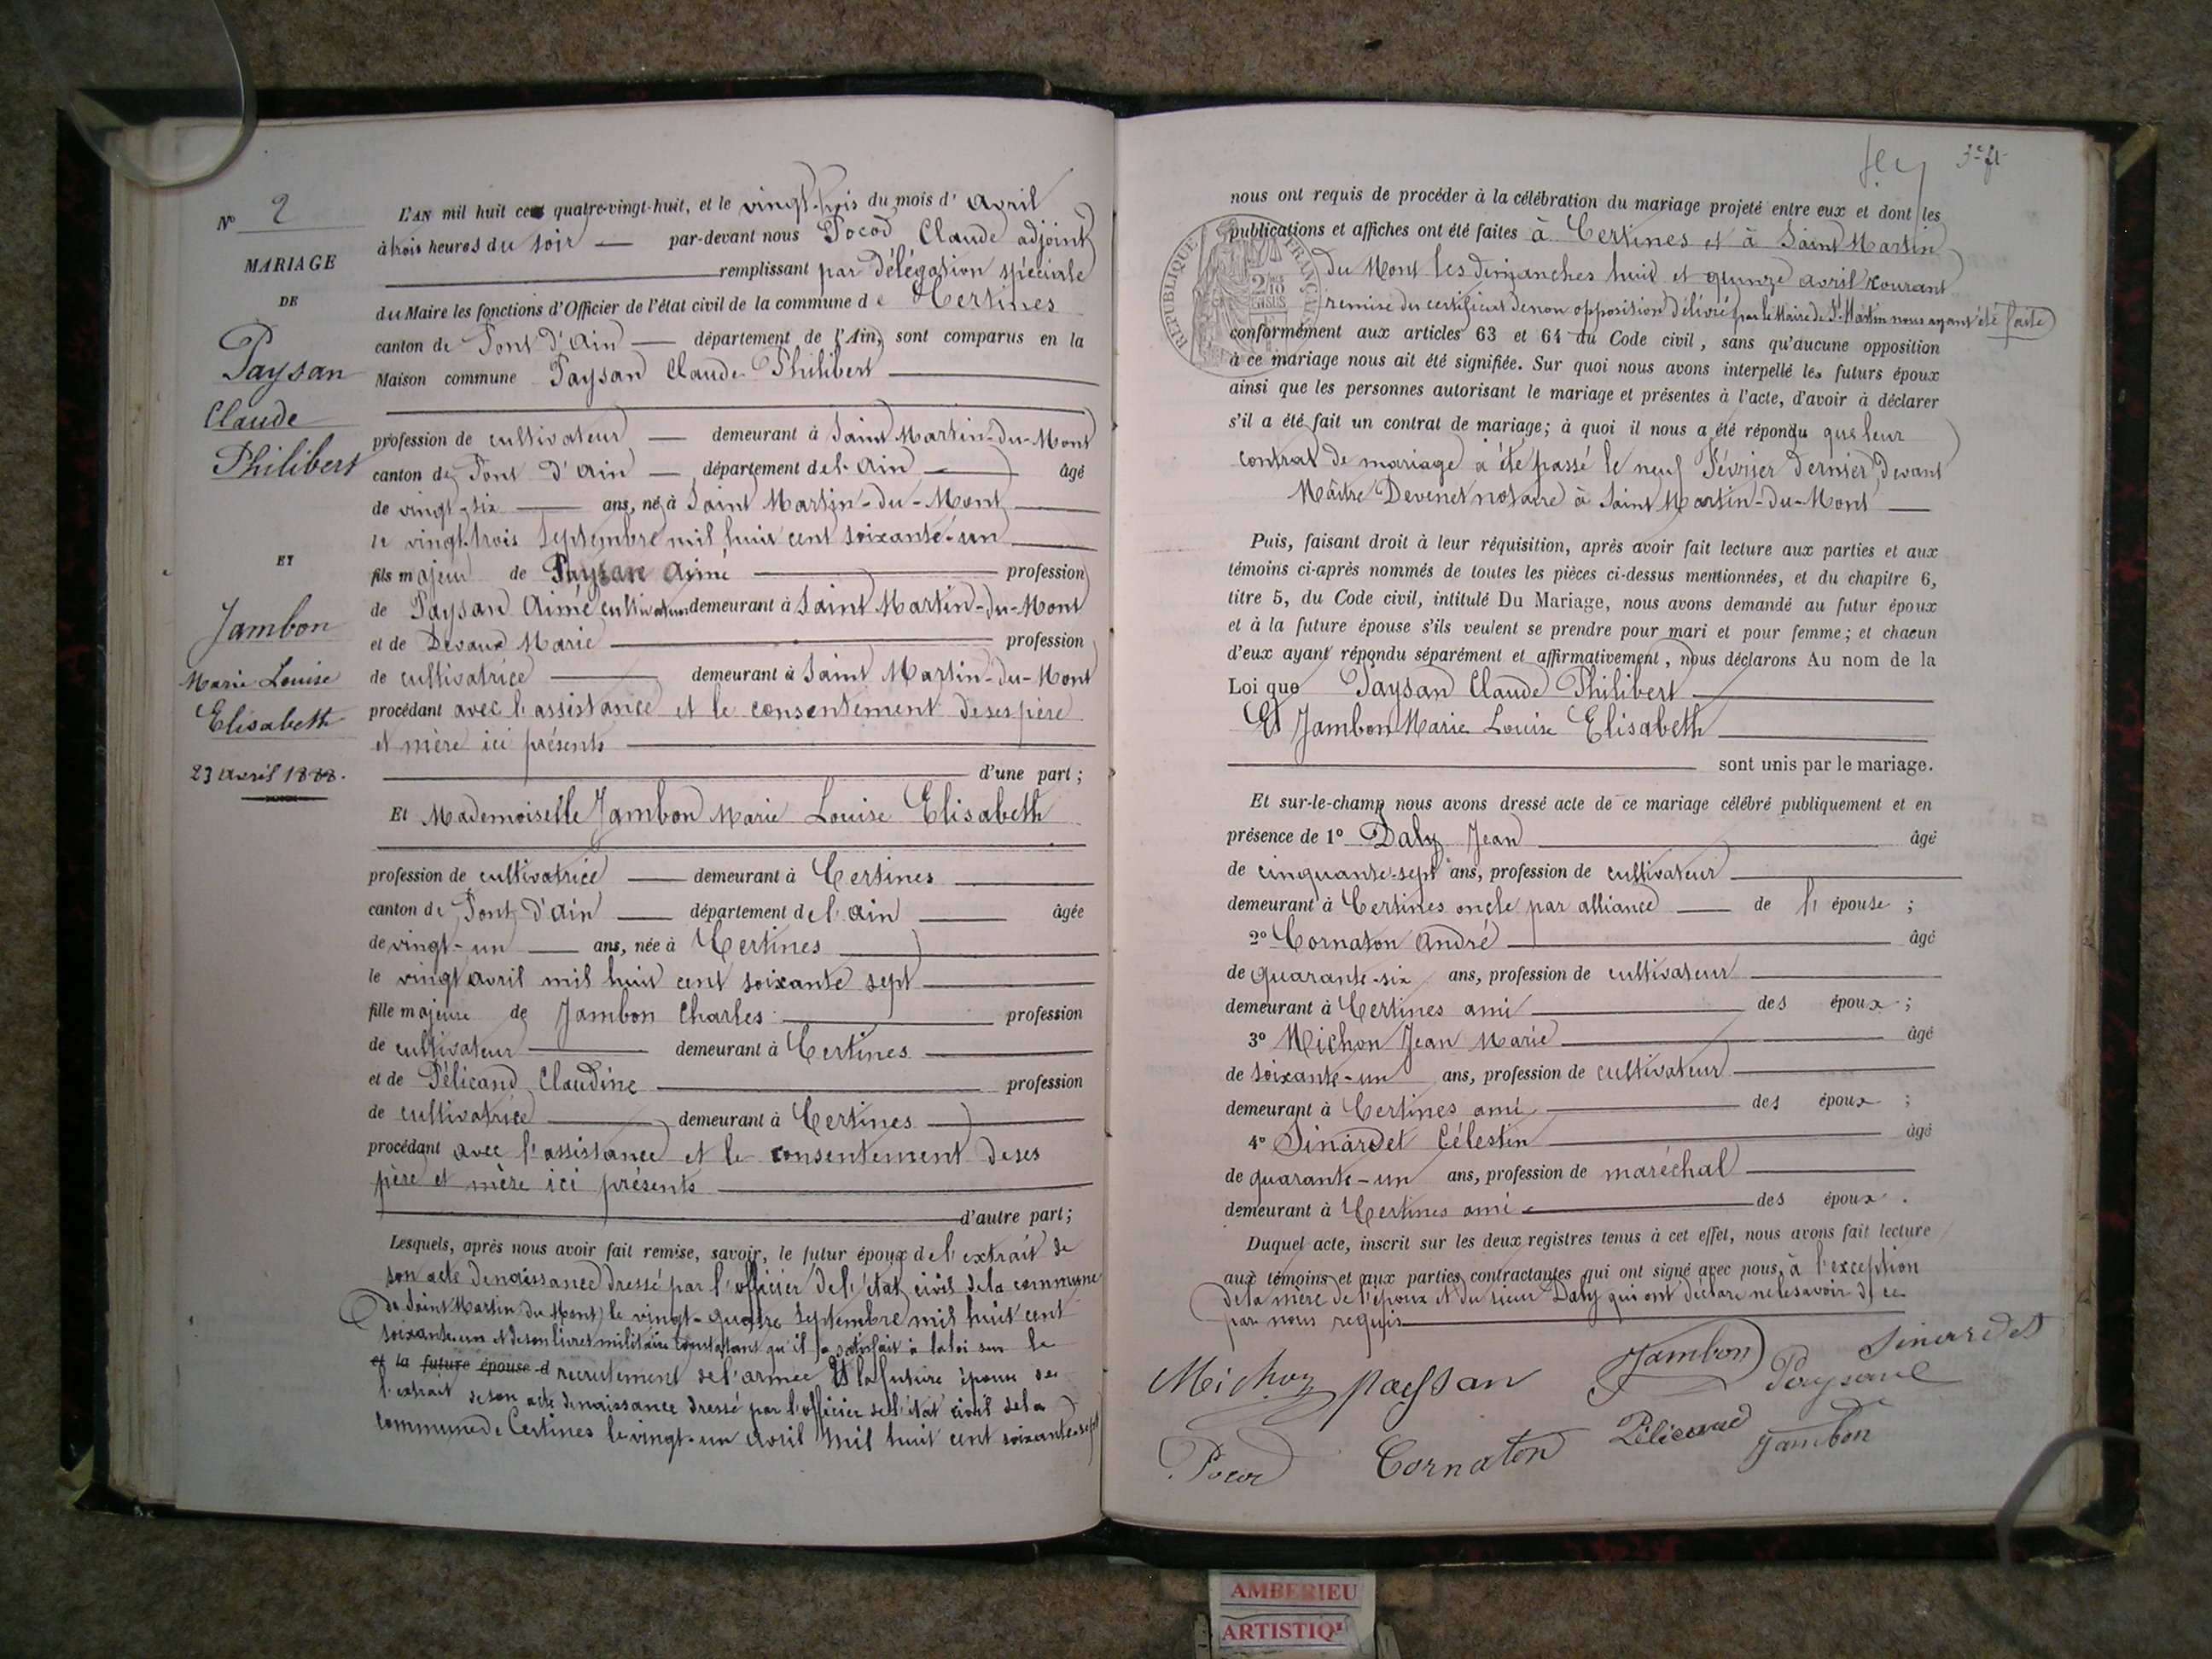 N° 2
MARIAGE
DE
Paysan
Claude
Philibert
ET
Jambon
Marie Louise
Elisabeth
23 avril 1888.
L'AN mil huit cent quatre-vingt-huit, et le vingt-trois du mois d' avril
à trois heures du soir — par-devant nous Pocod Claude adjoint
remplissant par délégation spéciale
du Maire les fonctions d'Officier de l'état civil de la commune de Certines
canton de Pont d'Ain — département de l'Ain, sont comparus en la
Maison commune Paysan Claude Philibert
profession de cultivateur — demeurant à Saint Martin-du-Mont
canton de Pont d'Ain — département de l'Ain — âgé
de vingt-six — ans, né à Saint Martin-du-Mont
le vingt-trois Septembre mil huit cent soixante-un
fils majeur de Paysan Aimé profession
de Paysan Aimé cultivateur demeurant à Saint Martin-du-Mont
et de Devaux Marie profession
de cultivatrice demeurant à Saint Martin-du-Mont
procédant avec l'assistance et le consentement de ses père
et mère ici présents
d'une part ;
Et Mademoiselle Jambon Marie Louise Elisabeth
profession de cultivatrice — demeurant à Certines
canton de Pont d'Ain — département de l'Ain — âgée
de vingt-un — ans, née à Certines
le vingt avril mil huit cent soixante sept
fille majeure de Jambon Charles profession
de cultivateur demeurant à Certines
et de Pélicand Claudine profession
de cultivatrice demeurant à Certines
procédant avec l'assistance et le consentement de ses
père et mère ici présents
d'autre part ;
Lesquels, après nous avoir fait remise, savoir, le futur époux de l'extrait de
son acte de naissance dressé par l'officier de l'état civil de la commune
de Saint Martin du Mont le vingt-quatre Septembre mil huit cent
soixante-un et de son livret militaire constatant qu'il a satisfait à la loi sur le
et la future épouse d recrutement de l'armée Et la future épouse de
l'extrait de son acte de naissance dressé par l'officier de l'état civil de la
commune de Certines le vingt-un avril mil huit cent soixante-sept
nous ont requis de procéder à la célébration du mariage projeté entre eux et dont les
publications et affiches ont été faites à Certines et à Saint Martin
du Mont les dimanches huit et quinze avril courant
remise du certificat de non opposition délivré par le Maire de St Martin nous ayant été faite
conformément aux articles 63 et 64 du Code civil, sans qu'aucune opposition
à ce mariage nous ait été signifiée. Sur quoi nous avons interpellé les futurs époux
ainsi que les personnes autorisant le mariage et présentes à l'acte, d'avoir à déclarer
s'il a été fait un contrat de mariage ; à quoi il nous a été répondu que leur
contrat de mariage a été passé le neuf Février dernier devant
Maître Devenet notaire à Saint Martin-du-Mont
Puis, faisant droit à leur réquisition, après avoir fait lecture aux parties et aux
témoins ci-après nommés de toutes les pièces ci-dessus mentionnées, et du chapitre 6,
titre 5, du Code civil, intitulé Du Mariage, nous avons demandé au futur époux
et à la future épouse s'ils veulent se prendre pour mari et pour femme ; et chacun
d'eux ayant répondu séparément et affirmativement, nous déclarons Au nom de la
Loi que Paysan Claude Philibert
Et Jambon Marie Louise Elisabeth
sont unis par le mariage.
Et sur-le-champ nous avons dressé acte de ce mariage célébré publiquement et en
présence de 1° Daly Jean âgé
de cinquante-sept ans, profession de cultivateur
demeurant à Certines oncle par alliance — de l' épouse ;
2° Cornaton André âgé
de quarante-six ans, profession de cultivateur
demeurant à Certines ami des époux ;
3° Michon Jean Marie âgé
de soixante-un ans, profession de cultivateur
demeurant à Certines ami des époux ;
4° Sinardet Célestin âgé
de quarante-un ans, profession de maréchal
demeurant à Certines ami des époux.
Duquel acte, inscrit sur les deux registres tenus à cet effet, nous avons fait lecture
aux témoins et aux parties contractantes qui ont signé avec nous, à l'exception
de la mère de l'époux et du sieur Daly qui ont déclaré ne le savoir de ce
par nous requis
Michon Paysan Jambon Paysan Sinardet
Pocod Cornaton Pélicand Jambon
RÉPUBLIQUE FRANÇAISE
AMBERIEU
ARTISTIQ